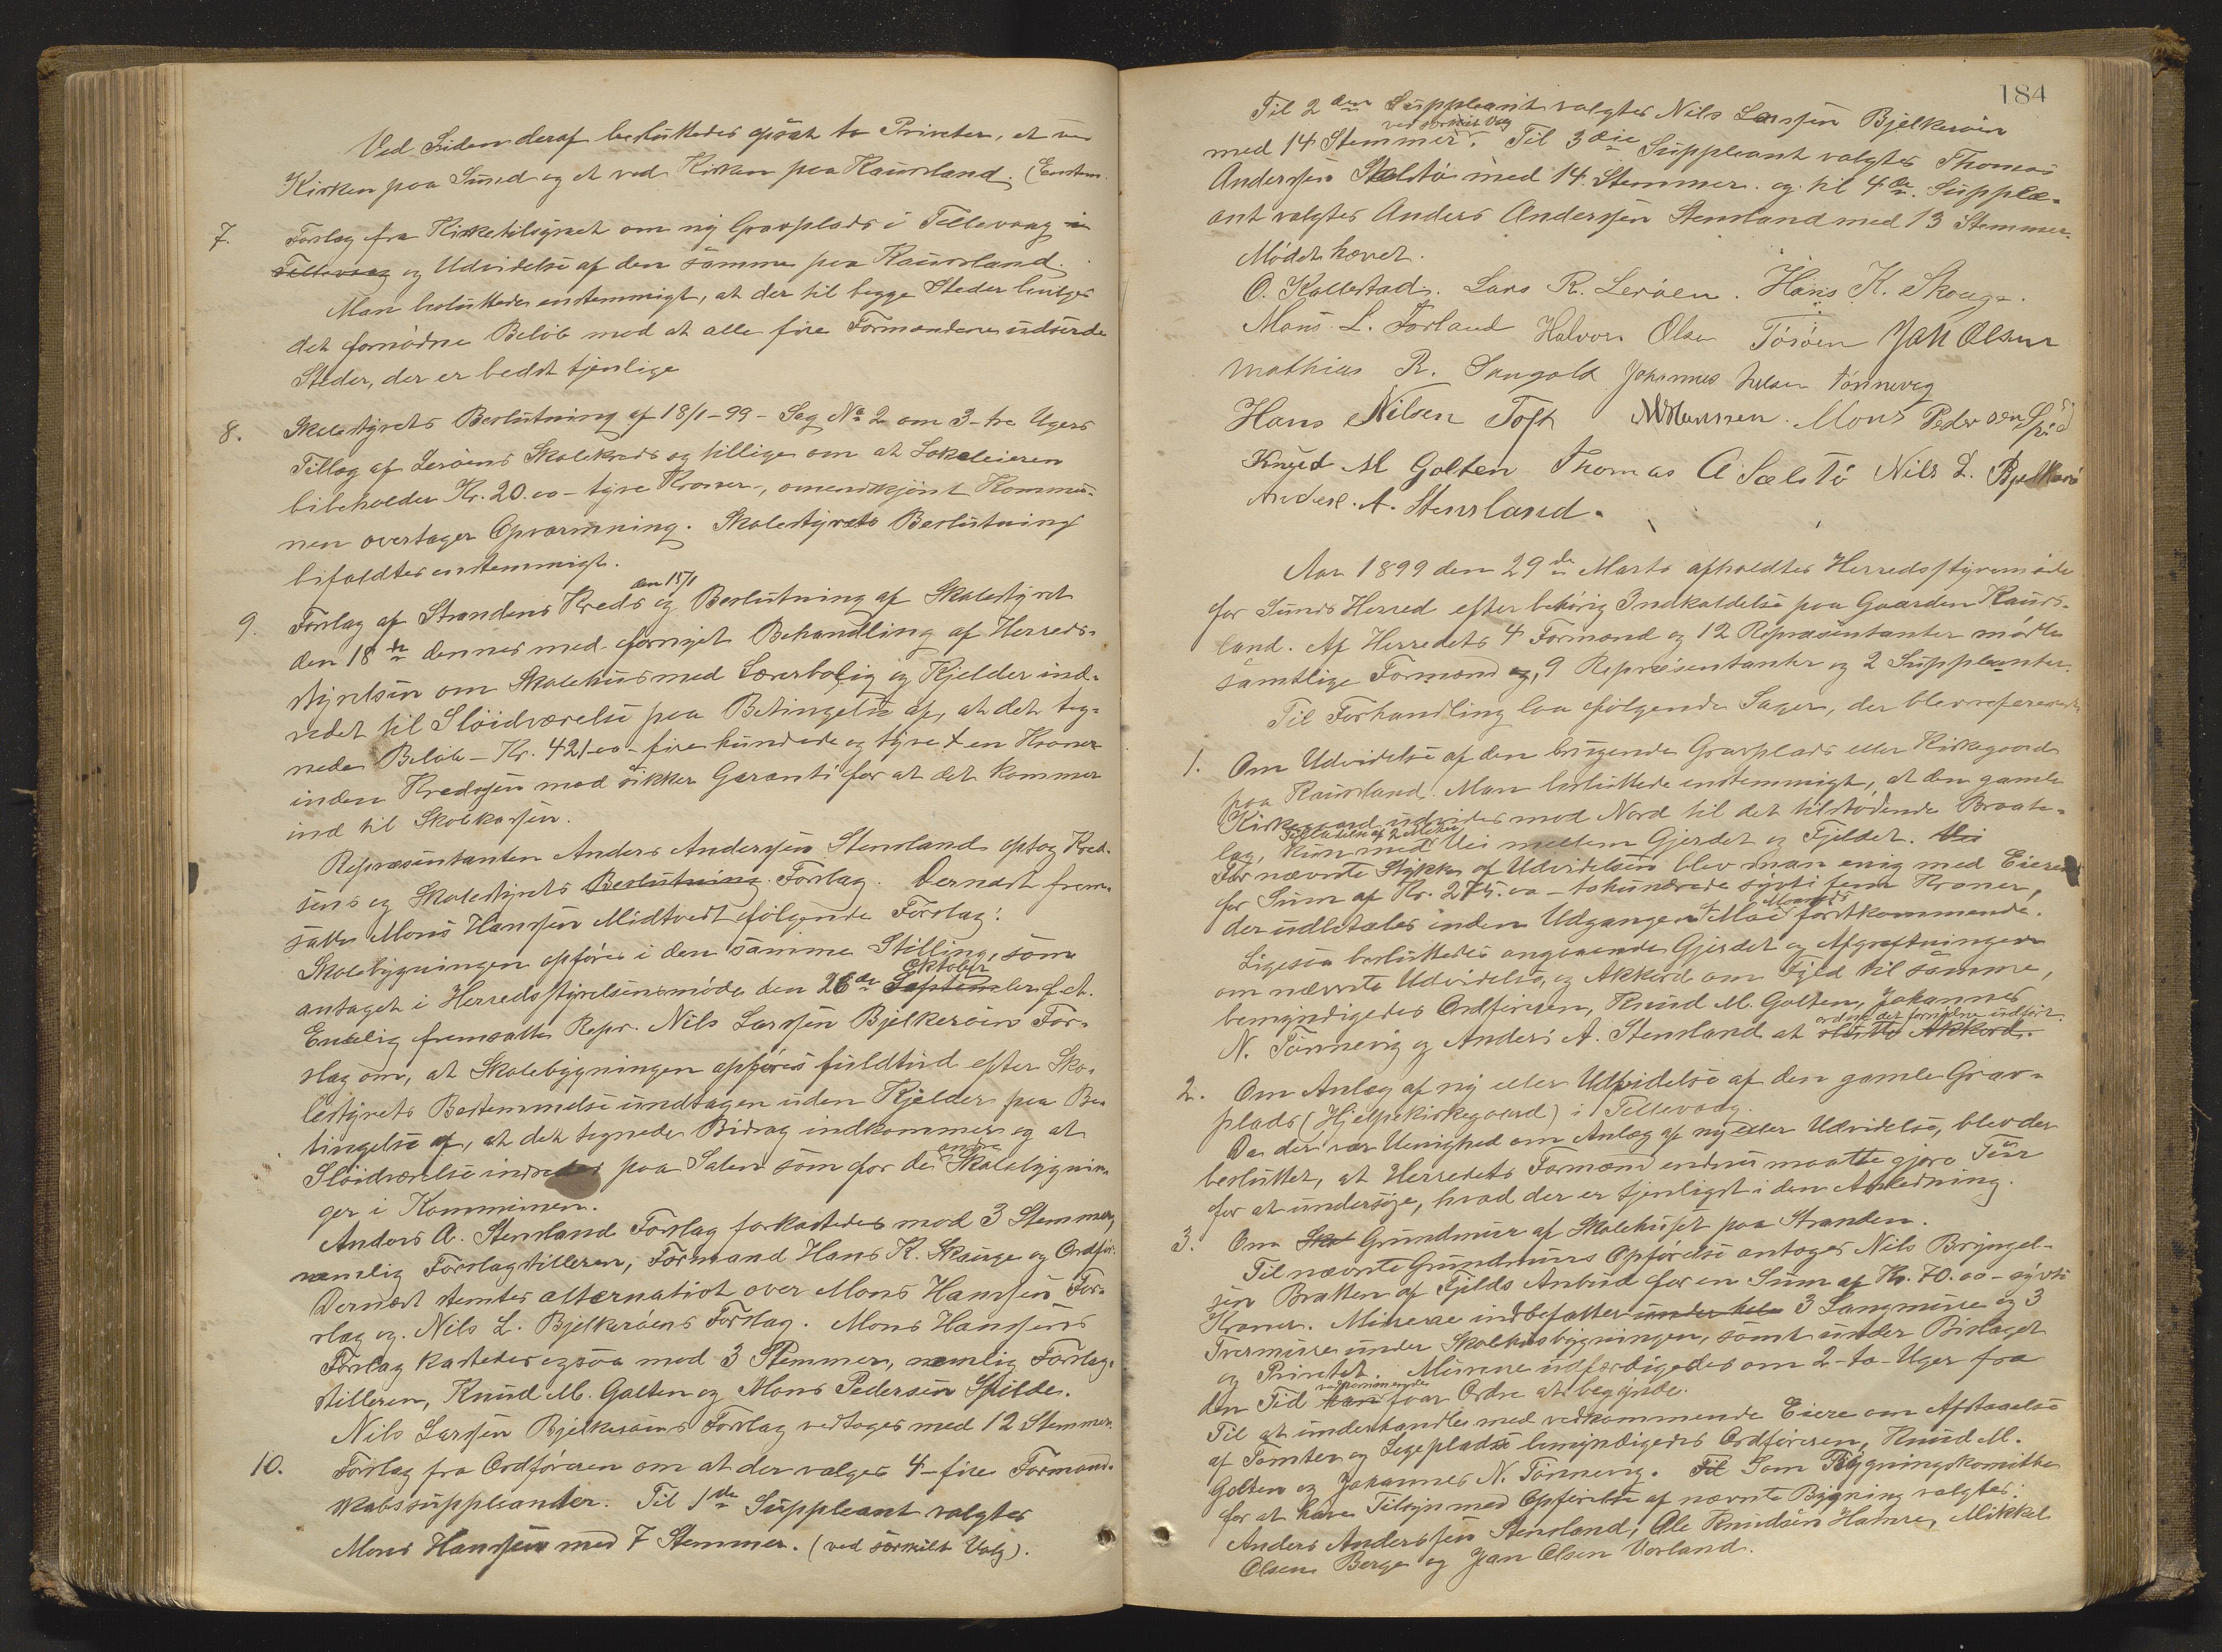 Ved Siden deraf besluttedes opsat to Priveter, et ved
Kirken paa Sund og et ved Kirken paa Kausland. (Enstem.
7. Forslag fra Kirketilsynet om ny Gravplads i Tellevaag i
Tellevaag og Udvidelse af den samme paa Kausland.
Man besluttede enstemmigt, at der til begge Steder bruges
det fornødne Beløb mod at alle fire Formændene udserde
Steder, der er bedst tjenlige
8. Skolestyrets Beslutning af 18/1-99 - Sag No 2 om 3-tre Ugers
Tillæg af Lerøens Skolekreds og tillige om at Lokaleieren
bibeholder Kr. 20.00 - tyve Kroner -, omendskjønt Kommu-
nen overtager Opvarmning. Skolestyrets Beslutning
bifaldtes enstemmigt.
den 15/1
9. Forslag af Strandens Kreds og Beslutning af Skolestyret
den 18de dennes med fornyet Behandling af Herreds-
styrelsen om Skolehus med Lærerbolig og Kjelder ind-
redet til Sløidværelse paa Betingelse af, at det teg-
nede Beløb - Kr. 421-00 - fire hundrede og tyve & en Kroner
inden Kredsen mod sikker Garanti for at det kommer
ind til Skolekassen.
Repræsentanten Anders Anderssen Stensland optog Kred-
sens og Skolestyrets Beslutning Forslag. Dernæst frem-
satte Mons Hanssen Midtvedt følgende Forslag:
Skolebygningen opføres i den samme Stilling, som
Oktober
antaget i Herredsstyrelsensmøde den 26de September f. A.
Endelig fremsatte Repr. Nils Larssen Bjelkerøen For-
slag om, at Skolebygningen opføres fuldtud efter Sko-
lestyrets Bestemmelse undtagen uden Kjelder paa Be-
tingelse af, at det tegnede Bidrag indkommer og at
andre
Sløidværelse indredes paa Salen som for de Skolebygnin-
ger i Kommunen.
Anders A. Stensland Forslag forkastedes mod 3 Stemmer,
nemlig Forslagstilleren, Formand Hans K. Skauge og Ordfør.
Dernæst stemtes alternativt over Mons Hanssen For-
slag og Nils L. Bjelkerøens Forslag. Mons Hanssens
Forslag kastedes ogsaa mod 3 Stemmer, nemlig Forslag-
stilleren, Knud M. Golten og Mons Pedersen Spilde.
Nils Larssen Bjelkerøens Forslag vedtoges med 12 Stemmer.
10. Forslag fra Ordføreren om at der vælges 4-fire Formand-
skabssuppleanter. Til 1ste Suppleant valgtes
Mons Hanssen med 7 Stemmer. (ved særskilt Valg).
184
Til 2den Suppleant valgtes Nils Larssen Bjelkerøen
ved særskilt Valg
med 14 Stemmer. Til 3die Suppleant valgtes Thomas
Anderssen Sælstø med 14 Stemmer. og til 4de Supple-
ant valgtes Anders Anderssen Stensland med 13 Stemmer.
Mødet hævet.
O. Kallestad. Lars R. Lerøen. Hans K. Skauge.
Mons L. Førland Halvor Olsen Tøsøen Jan Olsen
Mathias R. Sangolt Johannes Nilsen Tønnevig
Hans Nilsen Toft M Hanssen. Mons Pedersen Spild
Knud M Golten Thomas A Sælstø Nils L. Bjelkarø
Anders. A. Stensland.
Aar 1899 den 29de Marts afholdtes Herredsstyremøde
for Sunds Herred efter behørig Indkaldelse paa Gaarden Kaus-
land. Af Herredets 4 Formænd og 12 Repræsentanter mødte
samtlige Formænd og, 9 Repræsentanter og 2 Suppleanter.
Til Forhandling laa følgende Sager, der blev refererede
1. Om Udvidelse af den brugende Gravplads eller Kirkegaard
paa Kausland. Man besluttede enstemmigt, at den gamle
Kirkegaard udvides mod Nord til det tilstødende Braate-
Tilladelse af 2 Meter
lag, kun med Vei mellem Gjerdet og Fjeldet. Vei
For nævnte Stykke af Udvidelsen blev man enig med Eieren
for Sum af Kr. 275.00 - tohundrede sytti fem Kroner,
Maaned
der udbetales inden Udgangen Mai førstkommende.
Ligesaa besluttedes angaaende Gjerdet og Afgrøftningen
om nævnte Udvidelse, og Akkord om Fyld til samme,
bemyndigedes Ordføreren, Knud M. Golten, Johannes
ordne det fornødne udført.
N. Tønnevig og Anders A. Stensland at slutte Akkord.
2. Om Anlæg af ny eller Udvidelse af den gamle Grav-
plads (Hjelpekirkegaard) i Tellevaag.
Da der var Uenighed om Anlæg af ny eller Udvidelse, blev der
besluttet, at Herredets Formænd endnu maatte gjøre Tur
for at undersøge, hvad der er tjenligst i den Anledning.
3. Om Skol Grundmur af Skolehuset paa Stranden.
Til nævnte Grundmurs Opførelse antoges Nils Bryngel-
sen Bratten af Fjelds Anbud for en Sum af Kr. 70.00 - sytti
Kroner. Murene indbefatter under hele 3 Langmure og 3
Tvermure under Skolehusbygningen, samt under Bislaget
og Privetet. Murene udfærdigedes om 2-to-Uger fra
vedkommende
den Tid han faar Ordre at begynde.
Til at underhandle med vedkommende Eiere om Afstaaelse
af Tomten og Legeplads bemyndigedes Ordføreren, Knud M.
Golten og Johannes N. Tønnevig. Til Som Bygningskomitee
for at have Tilsyn med Opførelse af nævnte Bygning valgtes:
Anders Anderssen Stensland, Ole Knudsen Hamre, Mikkel
Olsen Berge og Jan Olsen Vorland.